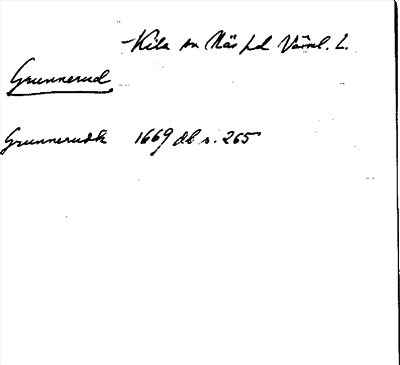 Kila sn Näs hd Värml. l.
Grunnerud
Grunnerudh 1669 db s. 265